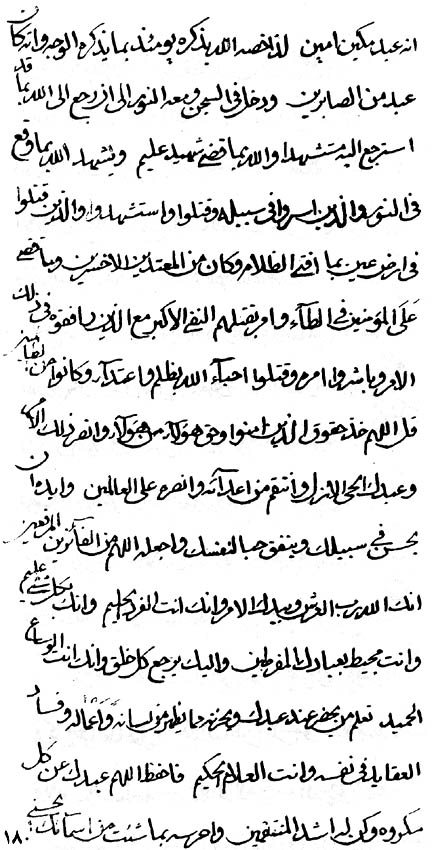 انه عبد مكين امين لذا خصه الله بذكره يومئذ بما يذكره الوجه وانه كان
عبد من الصابرين ودخل في السجن ومعه النور الى ان رجع الى الله بما قد
استرجع اليه مستشهدا والله بما قضى شهيد عليم ويشهد الله بما وقع
في النور والذين اسروا في سبيله وقتلوا واستشهدوا والذين قتلوا
في ارض بما افتى الظلام وكان من المعتدين الاخسرين وبما قضى
على المؤمنين في الطآء وامر بقتلهم الاكبر مع الذين رافقوه في ذلك
الامر وباشروا امره وقتلوا احبآء الله بظلم واعتدآء وكانوا من
قل اللهم خذ حقوق الذين امنوا وحق هؤلاء من هؤلاء وانصر ذلك الامر
وعبدك الازل وانتقم من اعدآئه وانصره على العالمين وايد ان
يحسن في سبيلك وينفق حبا لنفسك واجعله اللهم من الفائزين
انك الله رب العرش وبيدك الامر وانك انت الفرد الحليم وانك بكل شيء عليم
وانت محيط بعبادك المفرطين واليك يرجع كل خلق وانك انت
الحميد تعلم من يحضر عند عبدك ويحزنه بما يظهر من لسانه واعماله وفساد
العقايد في نفسه وانت العلام الحكيم فاحفظ اللهم عبدك عن كل
مكروه وكن له اشد المنتقمين واحرسه بما شئت من اسمائك
١٨٠